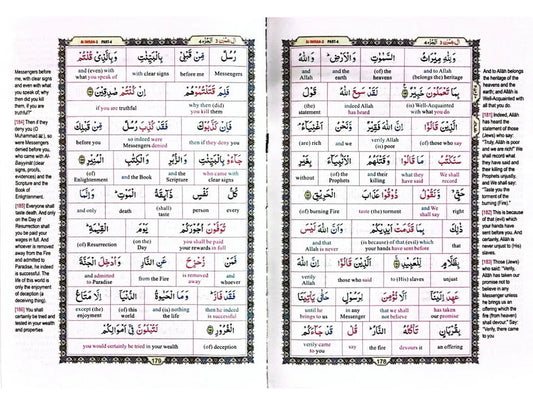 ال عمران ٣ الجزء ٤
AL IMRAN-3 PART-4
وَلِلّٰهِ مِيْرَاثُ السَّمٰوٰتِ وَالْاَرْضِ ؕ وَاللّٰهُ
and Allah and the earth (of) the heavens and to Allah (belongs) the heritage
بِمَا تَعْمَلُوْنَ خَبِيْرٌ لَقَدْ سَمِعَ اللّٰهُ قَوْلَ
(the) statement indeed Allah has heard (is) Well-Acquainted with what you do
الَّذِيْنَ قَالُوْۤا اِنَّ اللّٰهَ فَقِيْرٌ وَّنَحْنُ اَغْنِيَآءُ
(are) rich and we verily Allah is poor (of) those who say
سَنَكْتُبُ مَا قَالُوْا وَقَتْلَهُمُ الْاَنْۢبِيَآءَ بِغَيْرِ
without (of) the Prophets and their killing what they said We will record
حَقٍّ ۙ وَّنَقُوْلُ ذُوْقُوْا عَذَابَ الْحَرِيْقِ
(of) burning Fire taste (the) torment and We shall say right
ذٰلِكَ بِمَا قَدَّمَتْ اَيْدِيْكُمْ وَاَنَّ اللّٰهَ لَيْسَ
and that Allah is never (is because) of that (evil) which your hands have sent before you
بِظَلَّامٍ لِّلْعَبِيْدِ اَلَّذِيْنَ قَالُوْۤا اِنَّ اللّٰهَ
verily Allah those who said to (His) slaves unjust
عَهِدَ اِلَيْنَاۤ اَلَّا نُؤْمِنَ لِرَسُوْلٍ حَتّٰى يَاْتِيَنَا
until he brings to us in any Messenger that we shall not believe has taken our promise
بِقُرْبَانٍ تَاْكُلُهُ النَّارُ ؕ قُلْ قَدْ جَآءَكُمْ
verily came to you say (the) fire devours it an offering
178
And to Allah belongs
the heritage of the
heavens and the
earth; and Allah is
Well-Acquainted with
all that you do.
[181] Indeed, Allah
has heard the
statement of those
(Jews) who say:
"Truly, Allah is poor
and we are rich!" We
shall record what
they have said and
their killing of the
Prophets unjustly,
and We shall say:
"Taste you the
torment of the
burning (Fire)."
[182] This is because
of that (evil) which
your hands have
sent before you.
And certainly, Allah is
never unjust to (His)
slaves.
[183] Those (Jews)
who said: "Verily,
Allah has taken our
promise not to
believe in any
Messenger unless
he brings us an
offering which the
fire (from heaven)
shall devour." Say:
"Verily, there came
to you
ال عمران ٣ الجزء ٤
AL IMRAN-3 PART-4
رُسُلٌ مِّنْ قَبْلِيْ بِالْبَيِّنٰتِ وَبِالَّذِيْ قُلْتُمْ
and (even) with what you speak of with clear signs before me Messengers
فَلِمَ قَتَلْتُمُوْهُمْ اِنْ كُنْتُمْ صٰدِقِيْنَ
if you are truthful why then (did) you kill them
فَاِنْ كَذَّبُوْكَ فَقَدْ كُذِّبَ رُسُلٌ مِّنْ قَبْلِكَ
before you so indeed were Messengers denied then if they deny you
جَآءُوْ بِالْبَيِّنٰتِ وَالزُّبُرِ وَالْكِتٰبِ الْمُنِيْرِ
(of) Enlightenment and the Book and the Scripture who came with clear signs
كُلُّ نَفْسٍ ذَآئِقَةُ الْمَوْتِ ؕ وَاِنَّمَا
and only death (shall) taste person every
تُوَفَّوْنَ اُجُوْرَكُمْ يَوْمَ الْقِيٰمَةِ ؕ
(of) Resurrection (on the) Day you shall be paid your rewards in full
فَمَنْ زُحْزِحَ عَنِ النَّارِ وَاُدْخِلَ الْجَنَّةَ
and admitted to Paradise from the Fire is removed away and whoever
فَقَدْ فَازَ ؕ وَمَا الْحَيٰوةُ الدُّنْيَاۤ اِلَّا مَتَاعُ
except (the) enjoyment (of) this world and (is) nothing the life then he indeed is successful
الْغُرُوْرِ لَتُبْلَوُنَّ فِيْۤ اَمْوَالِكُمْ
you would certainly be tried in your wealth (of) deception
179
Messengers before
me, with clear signs
and even with what
you speak of; why
then did you kill
them, if you are
truthful?"
[184] Then if they
deny you (O
Muhammad), so
were Messengers
denied before you,
who came with Al-
Bayyinât (clear
signs, proofs,
evidences) and the
Scripture and the
Book of
Enlightenment.
[185] Everyone shall
taste death. And only
on the Day of
Resurrection shall
you be paid your
wages in full. And
whoever is removed
away from the Fire
and admitted to
Paradise, he indeed
is successful. The
life of this world is
only the enjoyment
of deception (a
deceiving thing).
[186] You shall
certainly be tried and
tested in your wealth
and properties